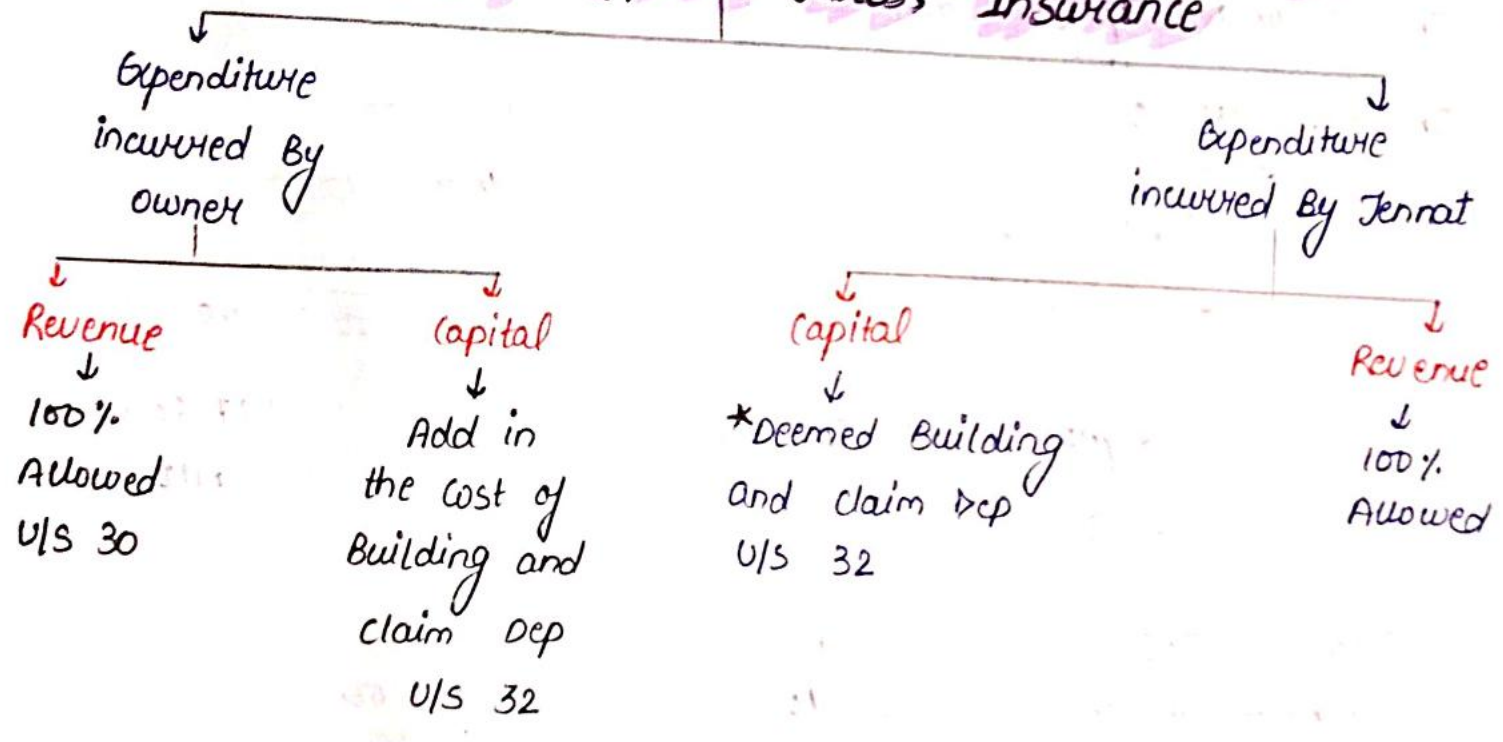 Insurance
Expenditure
incurred By
owner
Expenditure
incurred By Tennat
Revenue
100%
Allowed
U/S 30
Capital
Add in
the cost of
Building and
claim Dep
U/S 32
Capital
*Deemed Building
and claim Dep
U/S 32
Revenue
100%
Allowed